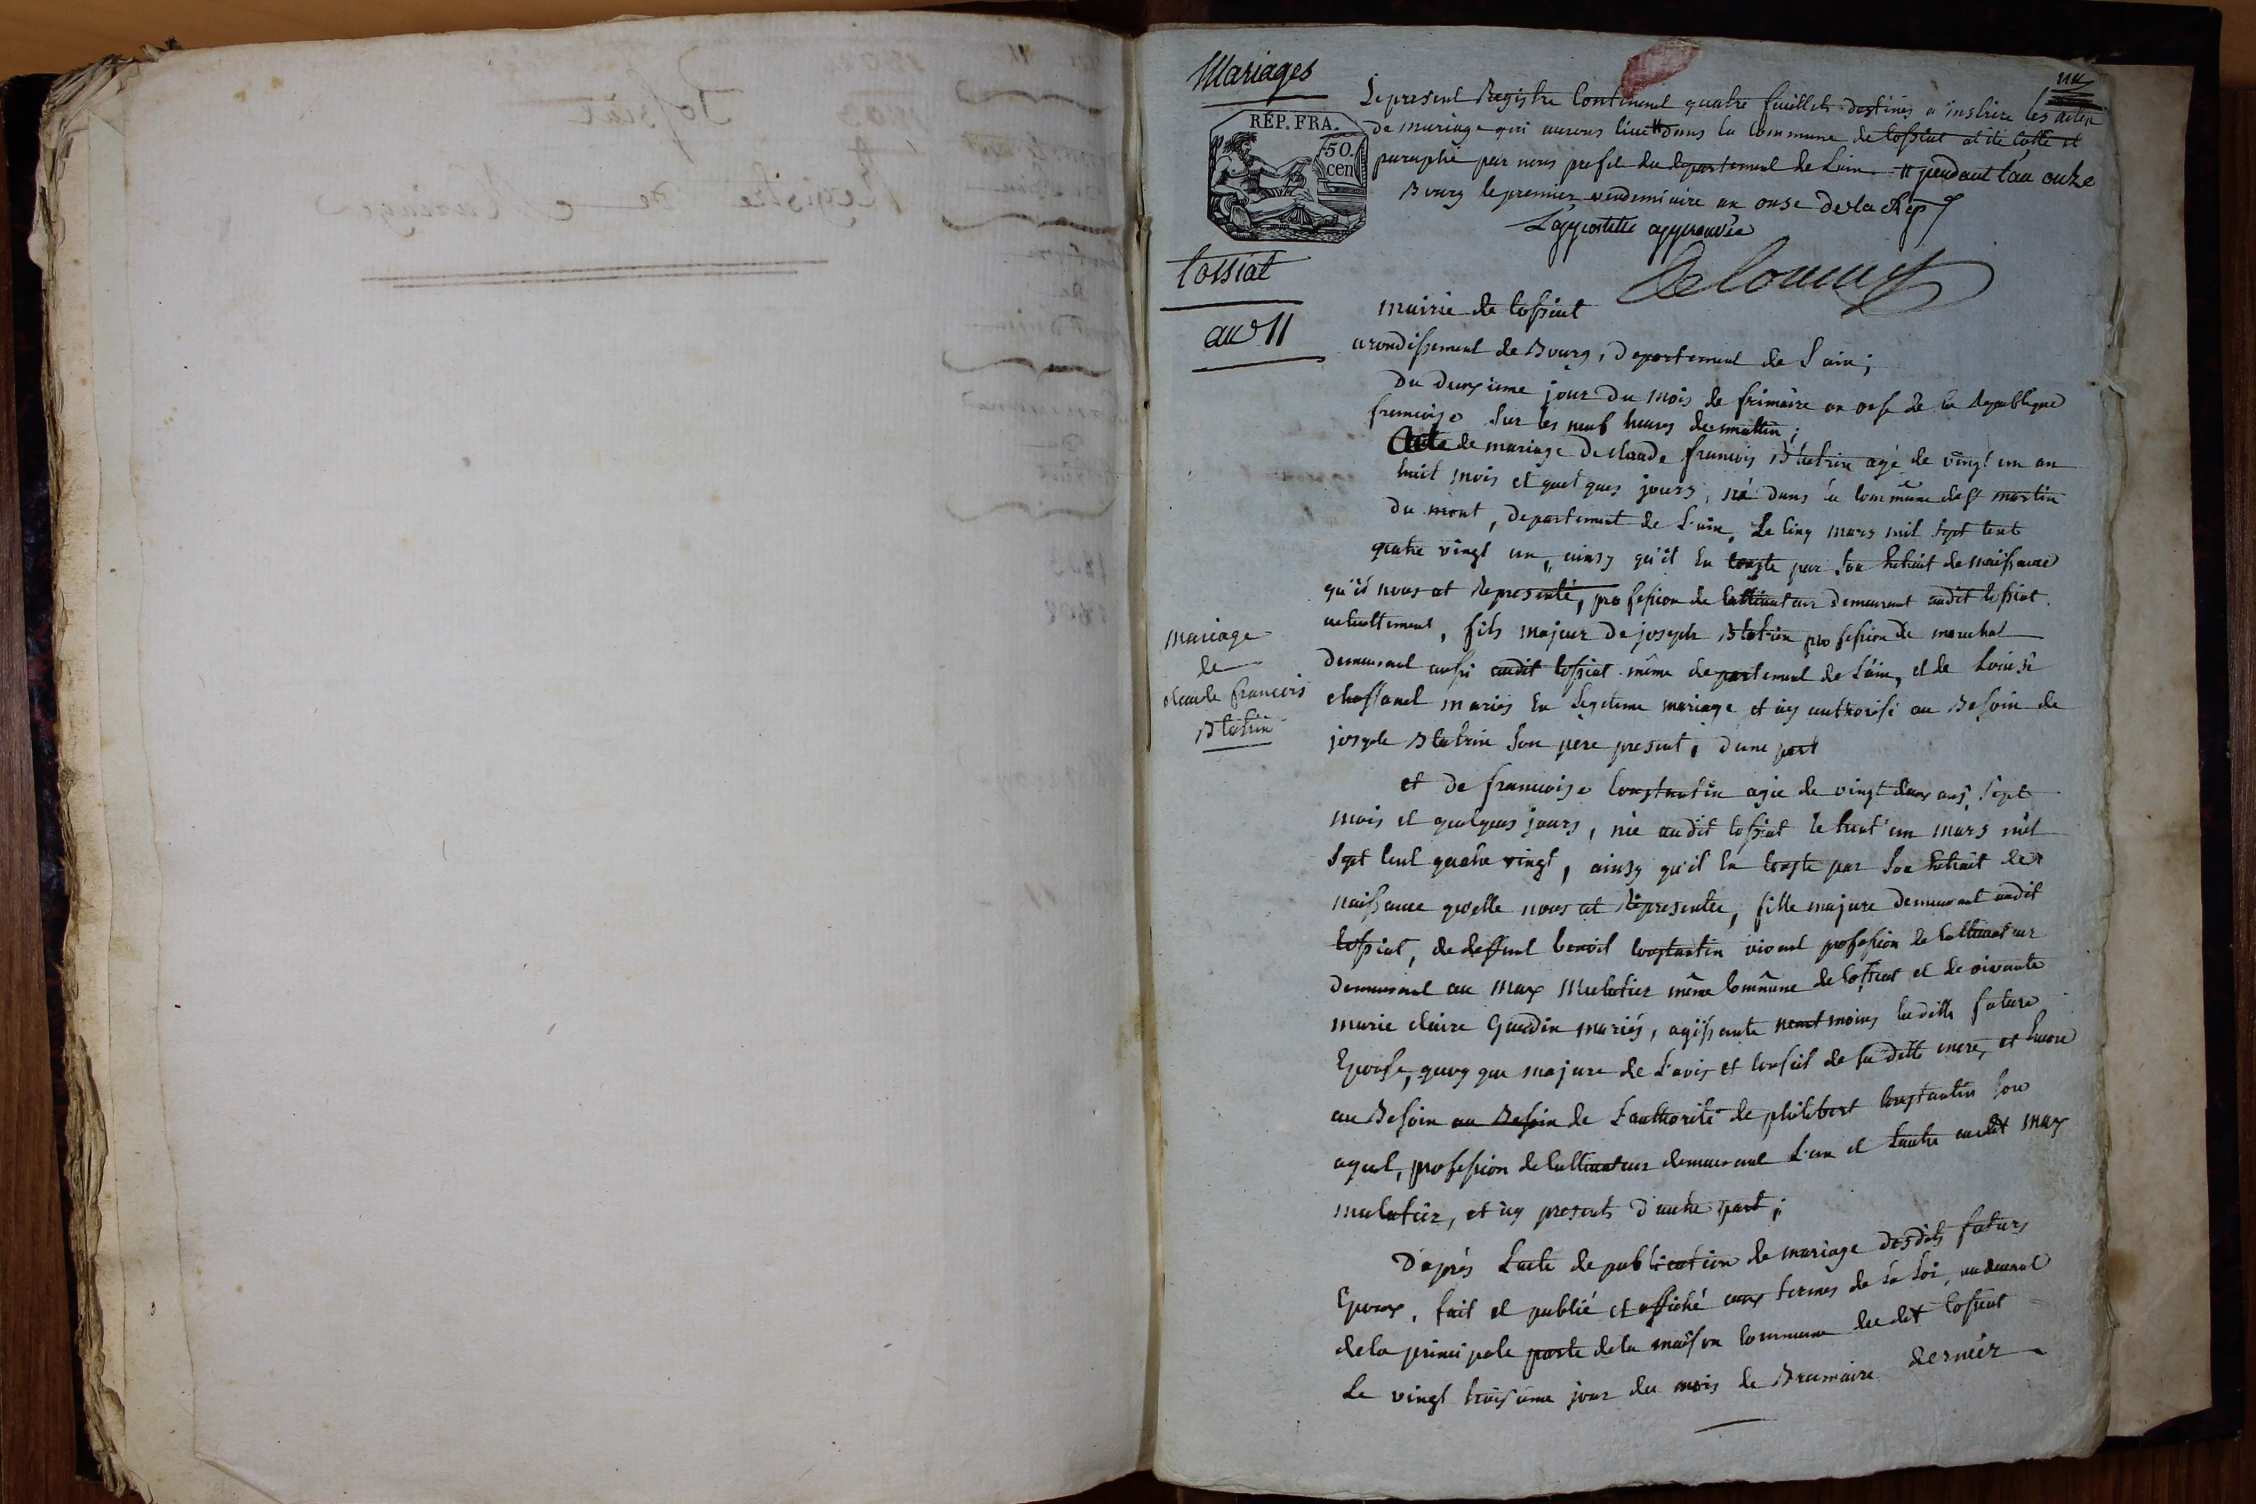 Mariages
un
Le present Registre Contenant quatre feuillets destinés a inscrire les actes
de mariage qui aurons lieu # dans la Commune de tossiat a été Cotté et
paraphé par nous prefet du departement de Lain. # pendant l'an onze
Bourg le premier vendemiaire an onse de la Rep
L'appostille approuvée
RÉP. FRA.
50.
cen
tossiat
an 11
mairie de tossiat
arondissement de Bourg, Departement de l'ain;
Du Deuxieme jour Du Mois de frimaire an onse de la Republique
francoise Sur les neuf heures de mattin;
Acte de mariage De claude francois Blatrin agé de vingt un an
huit mois et quelques jours, né dans la Commune de st martin
Du mont, departement de L'ain, Le Cinq mars mil Sept Cent
quatre vingt un, ainsy qu'il En Conste par Son Extrait de naissance
qu'il nous at Representé, profession de Cultivateur demeurant audit tossiat
actuellement, fils majeur De joseph Blatrin profession de marechal
Demeurant aussi audit tossiat même departement de L'ain, et de Louise
chossanel mariés En Legitime mariage et icy authorisé au Besoin de
joseph Blatrin Son père present, d'une part
mariage
de
claude francois
Blatrin
et De francoise Constantin agée de vingt deux ans, Sept
mois et quelques jours, née audit tossiat le trent'un mars mil
Sept Cent quatre vingt, ainsy qu'il En Conste par Son Extrait de
naissance qu'elle nous at Representée, fille majure Demeurant audit
tossiat, de deffunt benoit Constantin vivant profession de Cultivateur
Demeurant au Max Mulatier même Commune de tossiat et de vivante
marie claire Gaudin mariés, agissante neantmoins laditte future
Epouse, quoy que majure de L'avis et Conseil de saditte mere, et Encore
au Besoin au Besoin de L'authorité de philibert Constantin Son
ayeul, profession de Cultivateur demeurant L'un et L'autre audit Max
mulatier, et icy presents d'autre part;
D'après Lacte de publication de mariage desdits futurs
Epoux, fait et publié et affiché aux termes de La Loi, audevant
de la principale porte de la maison Commune dudit tossiat
Le vingt troisième jour du mois de Brumaire dernier